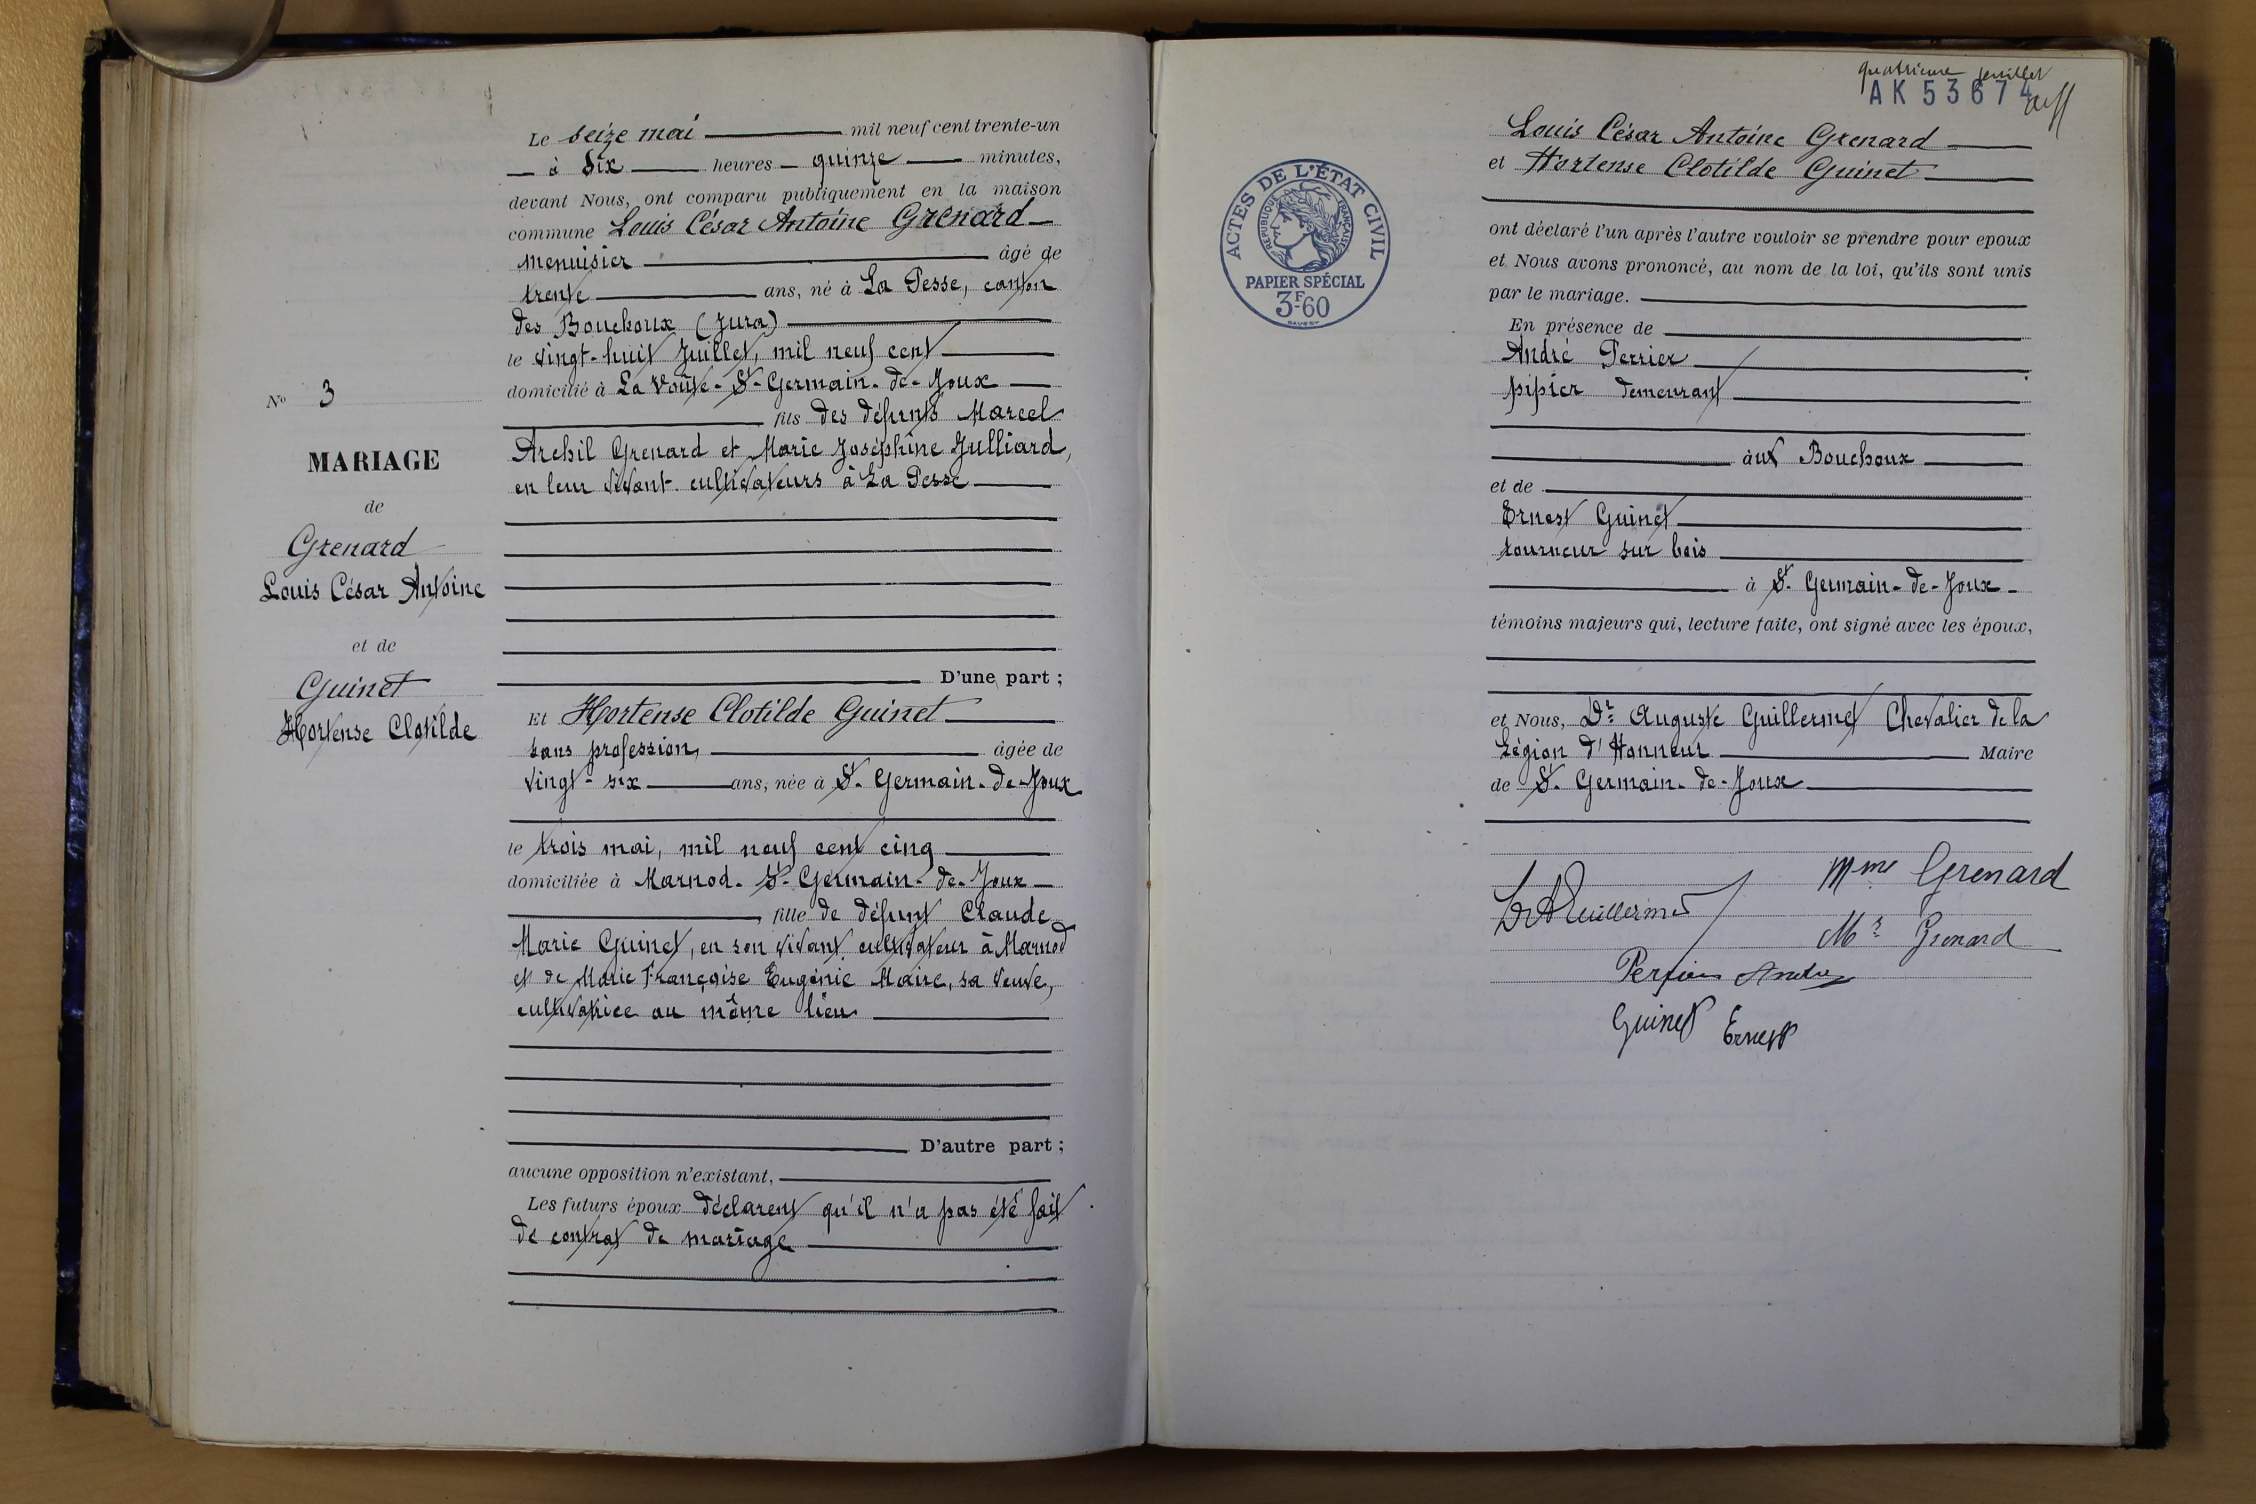 Le seize mai mil neuf cent trente-un
à six heures quinze minutes,
devant Nous, ont comparu publiquement en la maison
commune Louis César Antoine Grenard
menuisier âgé de
trente ans, né à La Pesse, canton
des Bouchoux (Jura)
le vingt-huit Juillet, mil neuf cent
domicilié à La Voûte-St-Germain-de-Joux
fils des défunts Marcel
Archil Grenard et Marie Joséphine Julliard,
en leur vivant cultivateurs à La Pesse
D'une part ;
Et Hortense Clotilde Guinet
sans profession, âgée de
vingt-six ans, née à St-Germain-de-Joux
le trois mai, mil neuf cent cinq
domiciliée à Marnod-St-Germain-de-Joux
fille de défunt Claude
Marie Guinet, en son vivant cultivateur à Marnod
et de Marie Françoise Eugénie Maire, sa veuve,
cultivatrice au même lieu
D'autre part ;
aucune opposition n'existant,
Les futurs époux déclarent qu'il n'a pas été fait
de contrat de mariage
No 3
MARIAGE
de
Grenard
Louis César Antoine
et de
Guinet
Hortense Clotilde
quatrième feuillet
AK 53674
Louis César Antoine Grenard
et Hortense Clotilde Guinet
ACTES DE L'ÉTAT CIVIL
RÉPUBLIQUE FRANÇAISE
PAPIER SPÉCIAL
3F-60
ont déclaré l'un après l'autre vouloir se prendre pour epoux
et Nous avons prononcé, au nom de la loi, qu'ils sont unis
par le mariage.
En présence de
André Perrier
pipier demeurant
aux Bouchoux
et de
Ernest Guinet
tourneur sur bois
à St Germain-de-Joux
témoins majeurs qui, lecture faite, ont signé avec les époux,
et Nous, Dr Auguste Guillermet Chevalier de la
Légion d'Honneur Maire
de St-Germain-de-Joux
Dr A Guillermet
Mme Grenard
Mr Grenard
Perrier André
Guinet Ernest